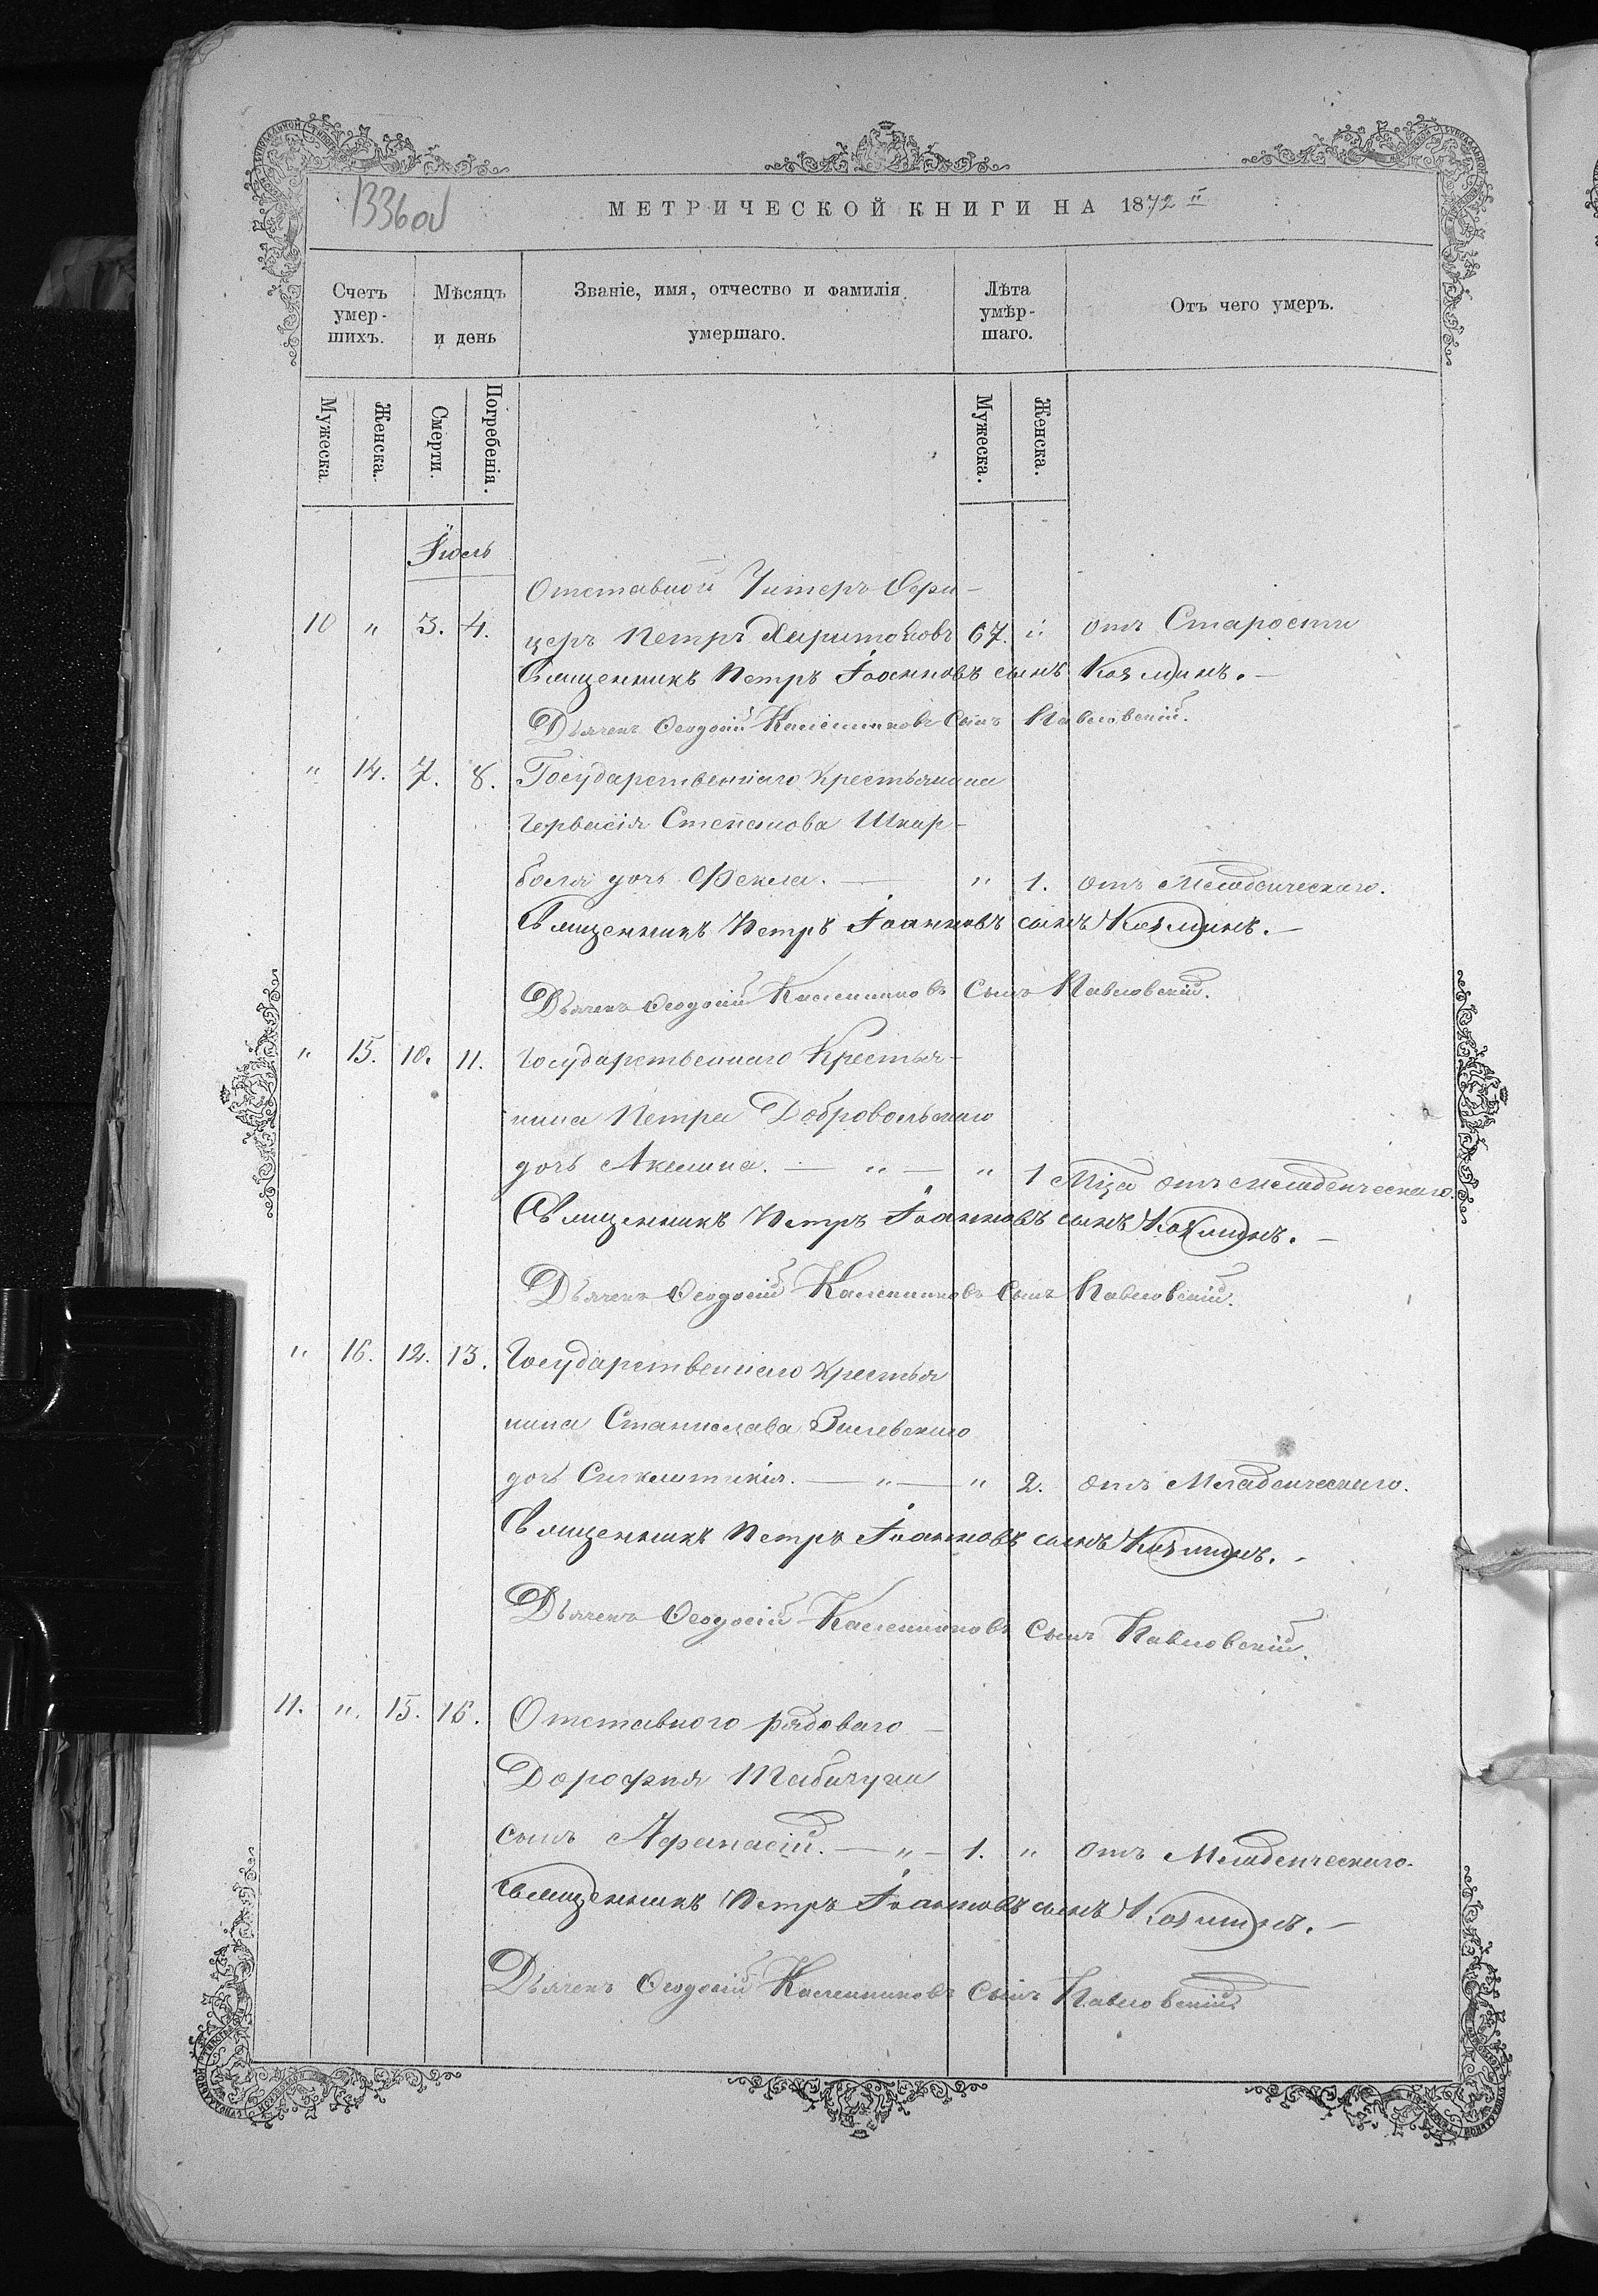 1336об
МЕТРИЧЕСКОЙ КНИГИ НА 1872 й
Счетъ умер-шихъ.
Мѣсяцъ и день
Званіе, имя, отчество и фамилія умершаго.
Лѣта умѣр-шаго.
Отъ чего умеръ.
Мужеска
Женска.
Смерти.
Погребенія.
Мужеска.
Женска.
Іюль
Отставной Унтеръ-Офи-
10 " 3. 4. церъ Петръ Харитоновъ 67. " отъ Старости
Священникъ Петръ Іоанновъ сынъ Козминъ.
Дьячекъ Ѳеодосій Калениковъ Сынъ Павловскій.
" 14. 7. 8. Государственнаго крестьянина
Гервасія Степанова Шкар-
боля дочь Фекла. — " 1. отъ Младенческаго.
Священникъ Петръ Іоанновъ сынъ Козминъ.
Дьячекъ Ѳеодосій Калениковъ Сынъ Павловскій.
" 15. 10. 11. Государственнаго Крестья-
нина Петра Добровольскаго
дочь Акилина. — " — " 1 Мца отъ младенческаго.
Священникъ Петръ Іоанновъ сынъ Козминъ.
Дьячекъ Ѳеодосій Калениковъ Сынъ Павловскій.
" 16. 12. 13. Государственнаго крестья
нина Станислава Залевскаго
дочь Синклитикія. — " — " 2. отъ Младенческаго.
Священникъ Петръ Іоанновъ сынъ Козминъ.
Дьячекъ Ѳеодосій Калениковъ Сынъ Павловскій.
11. " 15. 16. Отставного рядоваго
Дорофея
сынъ Афанасій. — " — 1. " отъ Младенческаго.
Священникъ Петръ Іоанновъ сынъ Козминъ.
Дьячекъ Ѳеодосій Калениковъ Сынъ Павловскій